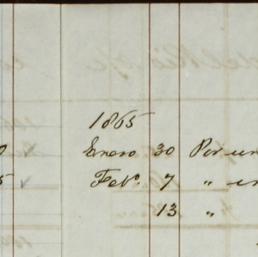 1865
Enero 30 Por un
5 Feb.º 7 " un
13 "